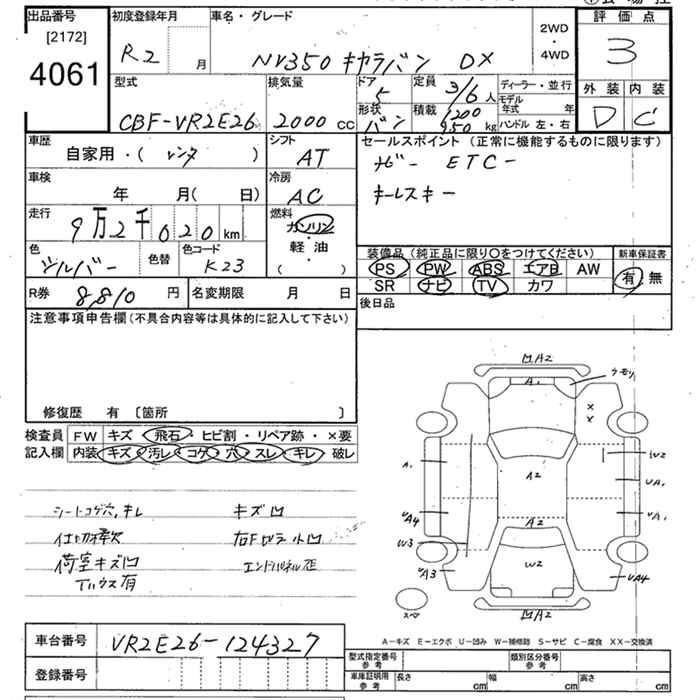 出品番号
[2172]
4061
初度登録年月
R2 月
車名・グレード
NV350 キャラバン DX
2WD
・
4WD
評価点
3
型式
CBF-VR2E26
排気量
2000 cc
ドア
5
定員
3/6 人
形状
バン
積載
1200
950 kg
ディーラー・並行
モデル年式 年
ハンドル 左・右
外装 内装
D C
車歴
自家用・( レンタ )
シフト
AT
セールスポイント (正常に機能するものに限ります)
ナビー ETCー
キーレスキー
車検
年 月( 日)
冷房
AC
走行
9万2千020 km
燃料
ガソリン
・
軽・油
( )
色
シルバー
色替
色コード
K23
装備品 (純正品に限り〇をつけてください)
PS PW ABS エアB AW
SR ナビ TV カワ
新車保証書
有・無
R券 8,810 円
名変期限 月 日
後日品
注意事項申告欄 (不具合内容等は具体的に記入して下さい)
修復歴 有 〔箇所 〕
検査員記入欄
FW キズ・飛石・ヒビ割・リペア跡・×要
内装 キズ・汚レ・コゲ・穴・スレ・キレ・破レ
シートコゲ穴,キレ キズ凹
仕切欠
荷室キズ凹 エンドパネル歪
凹A2
A1
ウモリ
×
×
A1
A2
W2
UA1
UA4
A2
UA1
W3
W2
UA3
UA4
凹A2
スペア
A-キズ E-エクボ U-凹み W-補修跡 S-サビ C-腐食 XX-交換済
車台番号
VR2E26-124327
登録番号
型式指定番号 参考
類別区分番号 参考
車庫証明用 参考
長さ cm
幅 cm
高さ cm